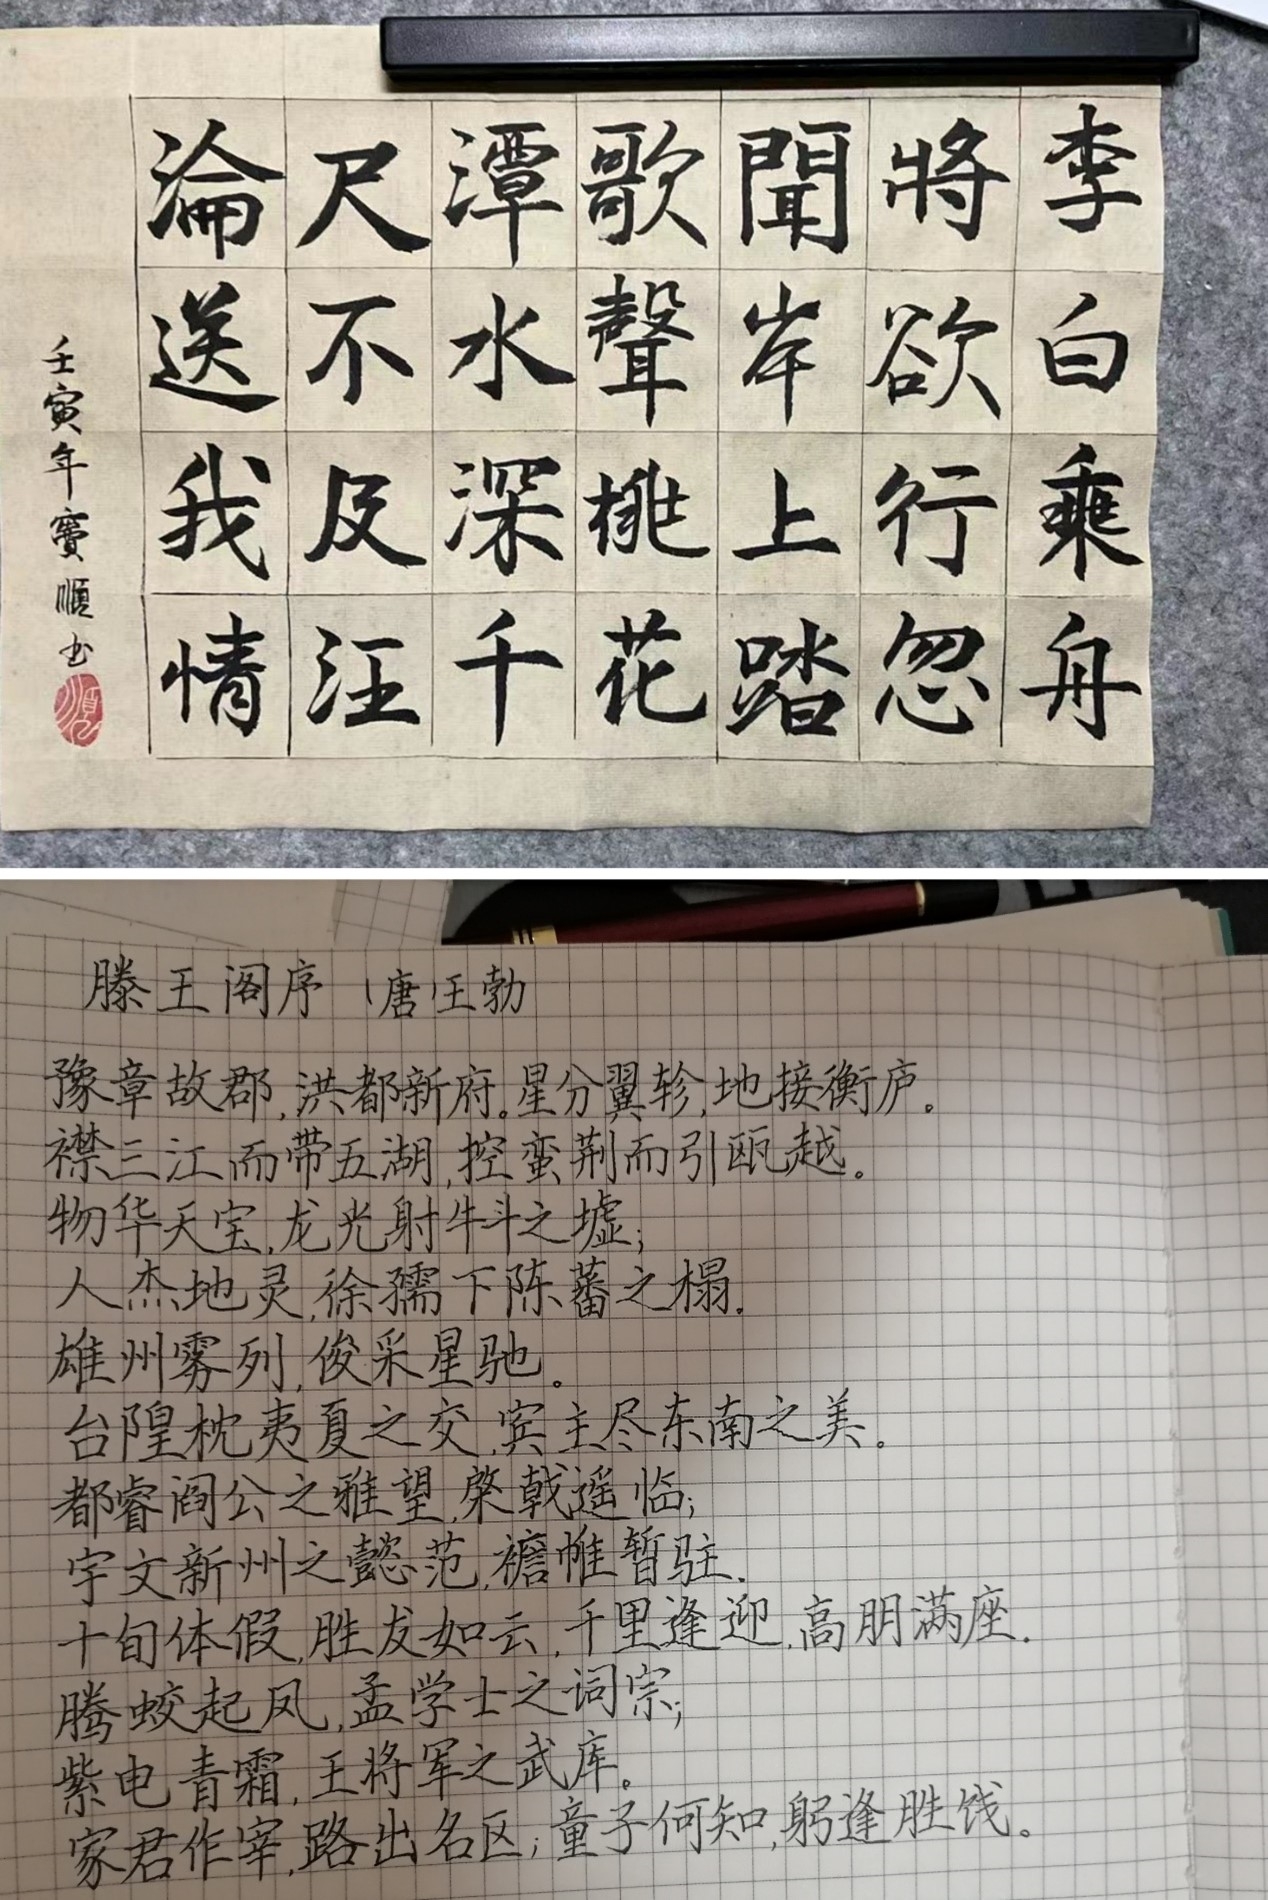 李白乘舟
將欲行忽
聞岸上踏
歌聲桃花
潭水深千
尺不及汪
淪送我情
壬寅年寶順书
順
滕王阁序 (唐)王勃
豫章故郡,洪都新府。星分翼轸,地接衡庐。
襟三江而带五湖,控蛮荆而引瓯越。
物华天宝,龙光射牛斗之墟;
人杰地灵,徐孺下陈蕃之榻.
雄州雾列,俊采星驰。
台隍枕夷夏之交,宾主尽东南之美。
都睿阎公之雅望,棨戟遥临;
宇文新州之懿范,襜帷暂驻.
十旬体假,胜友如云,千里逢迎,高朋满座.
腾蛟起凤,孟学士之词宗;
紫电青霜,王将军之武库。
家君作宰,路出名区;童子何知,躬逢胜饯。